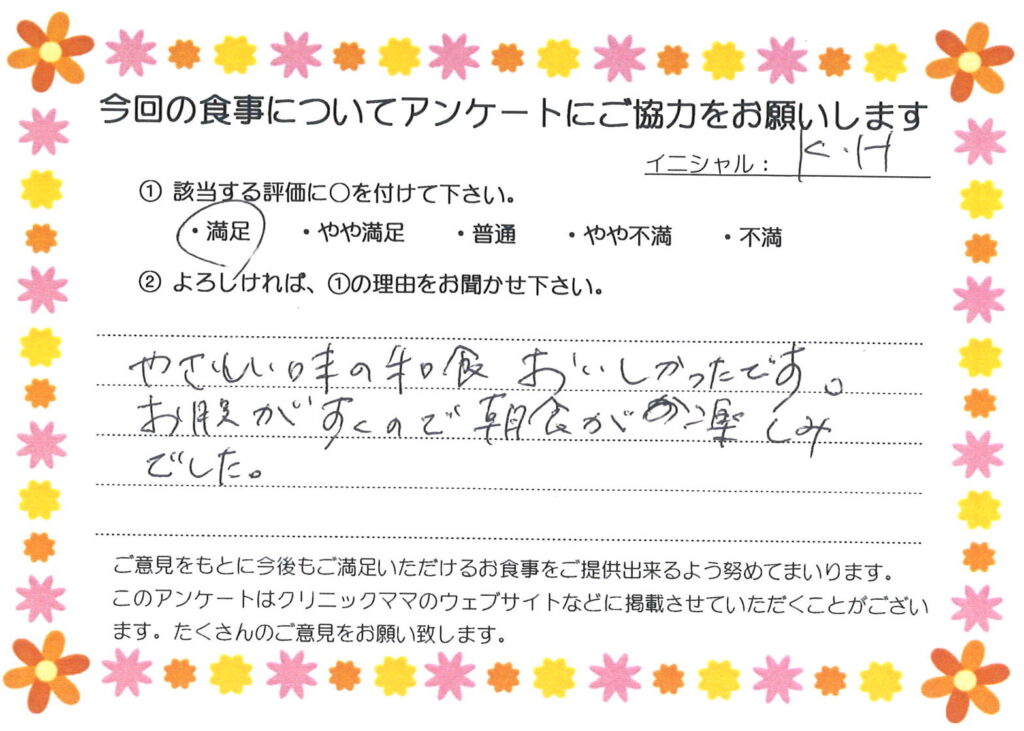 今回の食事についてアンケートにご協力をお願いします
イニシャル： K.H
① 該当する評価に○を付けて下さい。
・満足 ・やや満足 ・普通 ・やや不満 ・不満
② よろしければ、①の理由をお聞かせ下さい。
やさしい味の和食 おいしかったです。
お腹がすくので朝食がお楽しみ
でした。
ご意見をもとに今後もご満足いただけるお食事をご提供出来るよう努めてまいります。
このアンケートはクリニックママのウェブサイトなどに掲載させていただくことがござい
ます。たくさんのご意見をお願い致します。